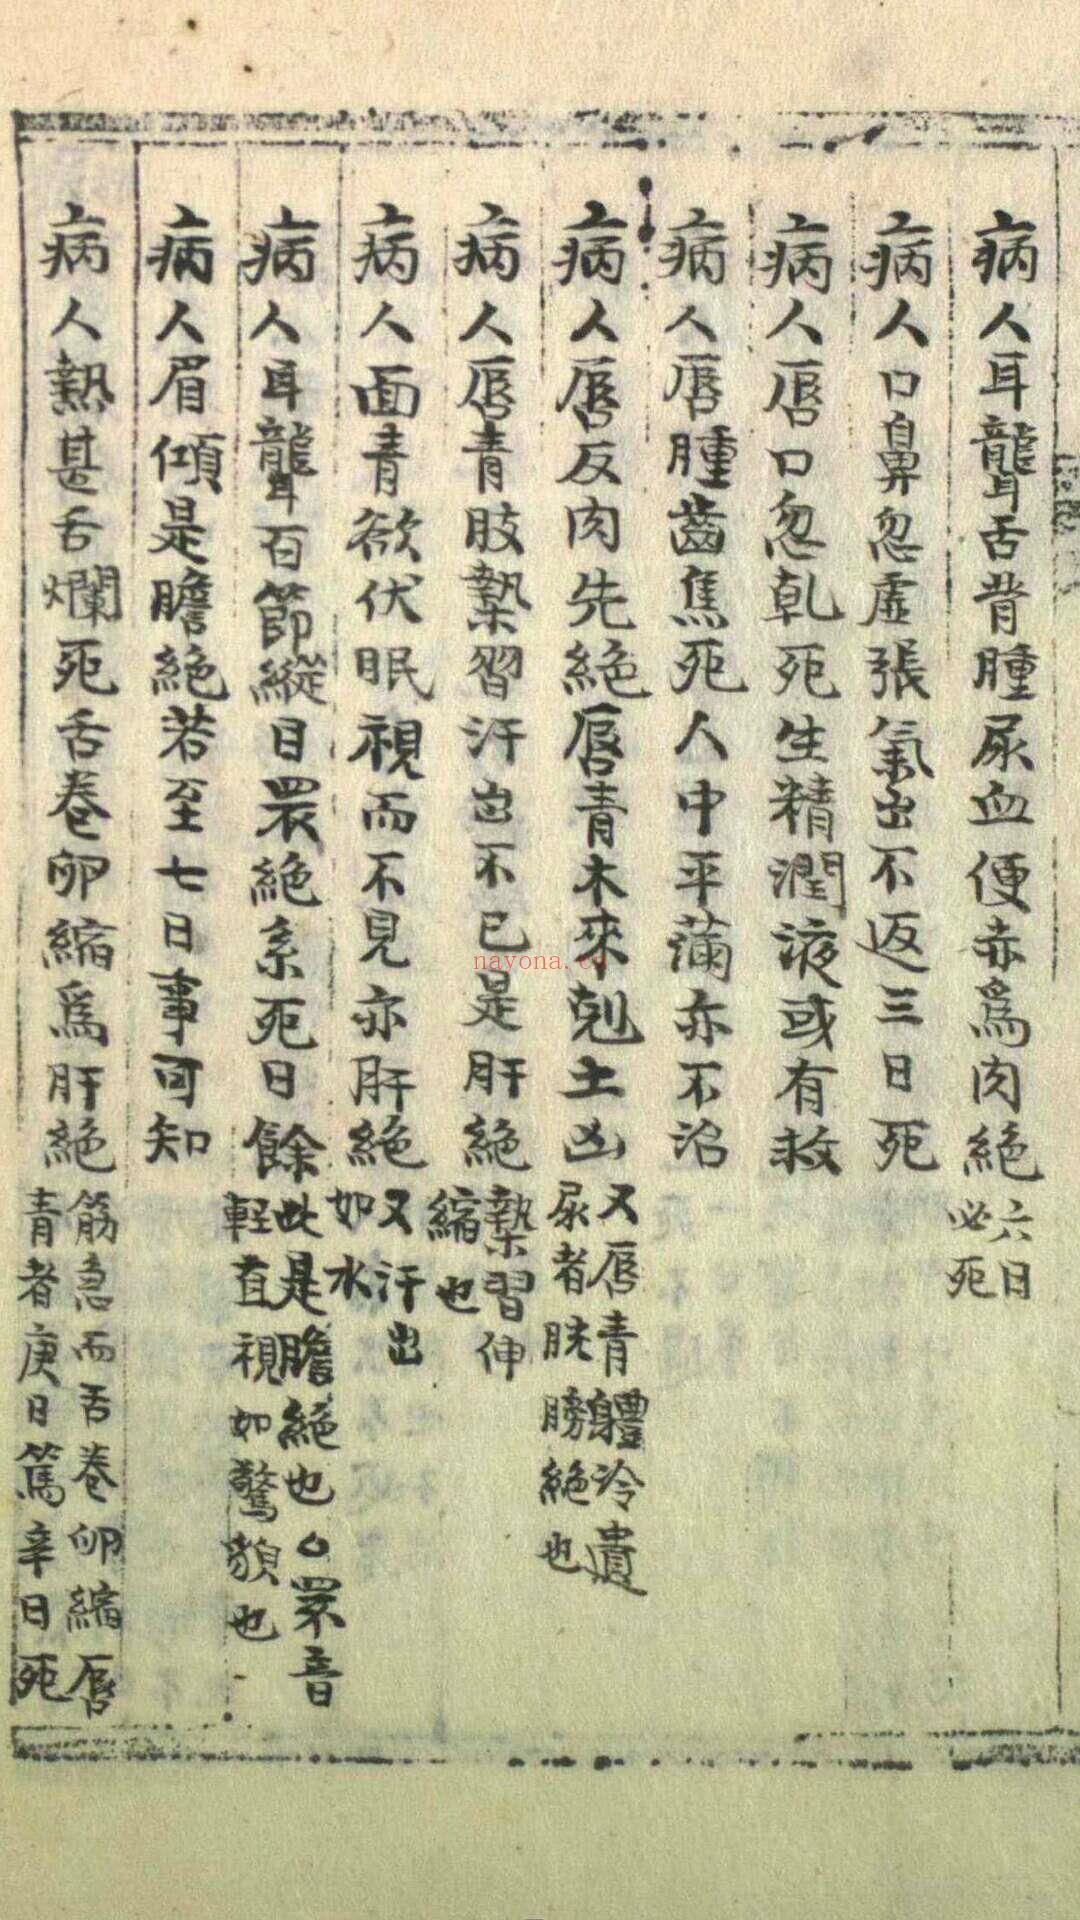 病人耳聾舌背腫尿血便赤為肉絕六日必死
病人口鼻忽虛張氣出不返三日死
病人唇口忽乾死生精潤液或有救
病人唇腫齒焦死人中平滿亦不治
病人唇反肉先絕唇青木來剋土凶又唇青體冷遺尿者胱膀絕也
病人唇青肢漐習汗出不已是肝絕漐習伸縮也
病人面青欲伏眠視而不見亦肝絕又汗出如水
病人耳聾百節縱目睘絕系死日餘此是膽絕也睘音輕直視如驚貌也
病人眉傾是膽絕若至七日事可知
病人熱甚舌爛死舌卷卵縮爲肝絕筋急而舌卷卵縮唇青者庚日篤辛日死
nayona.cn